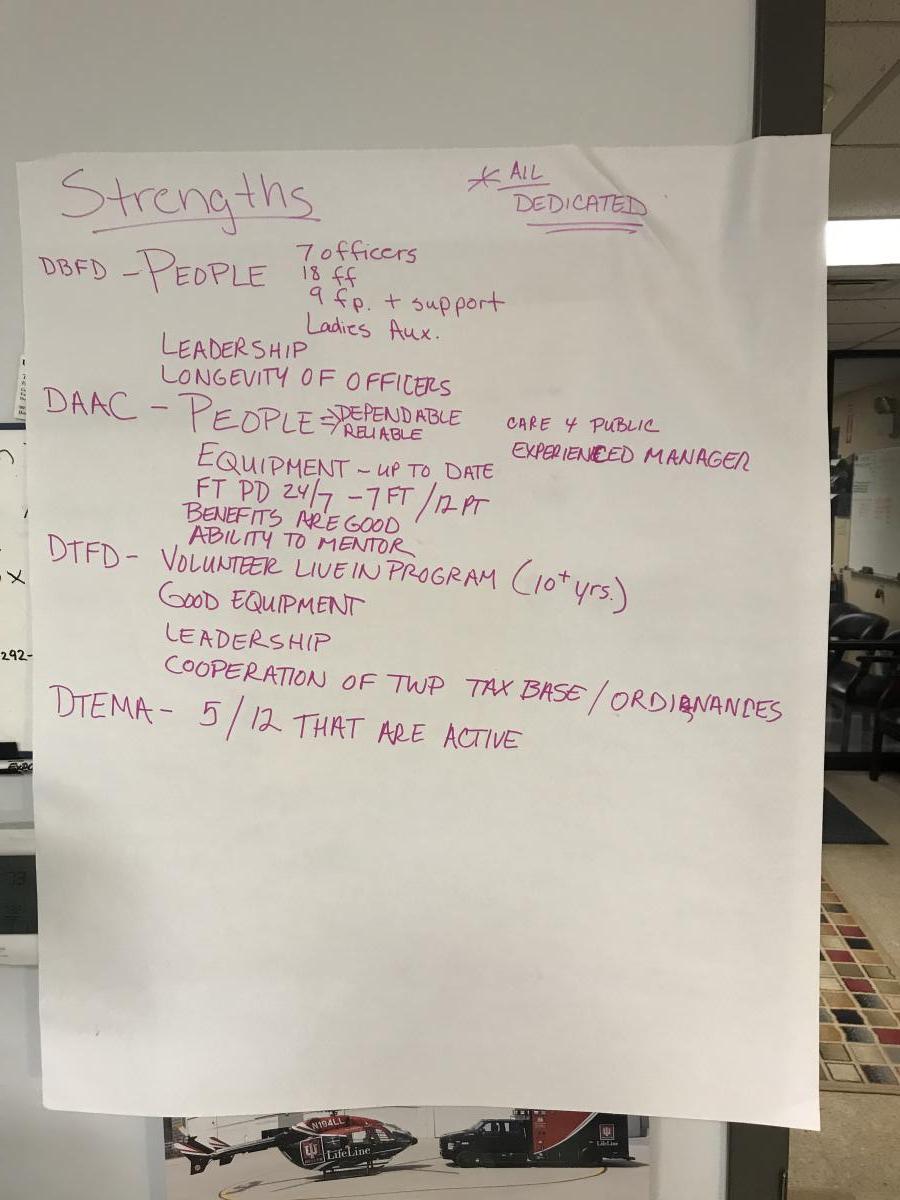 Strengths
* ALL
DEDICATED
DBFD - PEOPLE 7 officers
18 ff
9 fp. + support
Ladies Aux.
LEADERSHIP
LONGEVITY OF OFFICERS
DAAC - PEOPLE ⇒ DEPENDABLE
RELIABLE
CARE 4 PUBLIC
EXPERIENCED MANAGER
EQUIPMENT - UP TO DATE
FT PD 24/7 - 7 FT / 12 PT
BENEFITS ARE GOOD
ABILITY TO MENTOR
DTFD - VOLUNTEER LIVE IN PROGRAM (10+ yrs.)
GOOD EQUIPMENT
LEADERSHIP
COOPERATION OF TWP TAX BASE / ORDINANCES
DTEMA - 5/12 THAT ARE ACTIVE
X
292-
73
N194LL
LifeLine
LifeLine